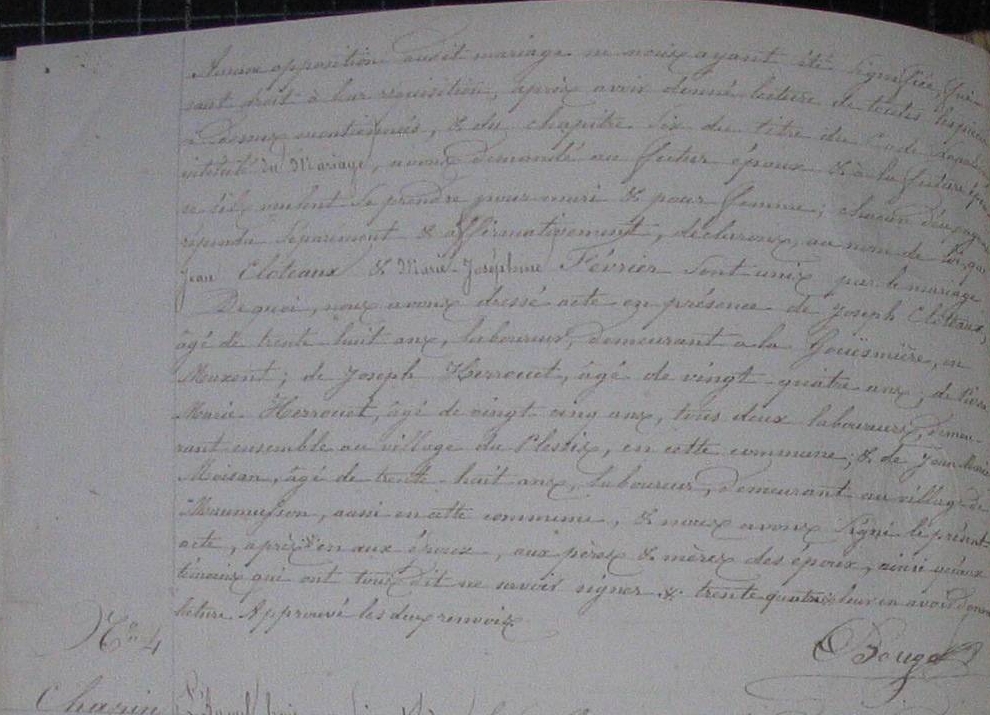 Aucune opposition audit mariage ne nous ayant été signifiée, fai-
sant droit à leur réquisition, après avoir donné lecture de toutes les pièces
ci-dessus mentionnées, & du chapitre six du titre du Code
intitulé du Mariage, avons demandé au futur époux & à la future épouse
s'ils veulent se prendre pour mari & pour femme; chacun d'eux ayant
répondu séparément & affirmativement, déclarons, au nom de la loi, que
Jean Cloteaux & Marie-Joséphine Février sont unis par le mariage
De quoi, nous avons dressé acte en présence de Joseph Cloteaux,
âgé de trente huit ans, laboureur, demeurant à la Gouësnière, en
Maxent; de Joseph Herrouet, âgé de vingt-quatre ans, de
Marie Herrouet, âgé de vingt cinq ans, tous deux laboureurs, demeu-
rant ensemble au village du Plessix, en cette commune; & de Jean Marie
Moisan, âgé de trente-huit ans, laboureur, demeurant au village de
Maumusson, aussi en cette commune, & nous avons signé le présent
acte, après aux époux, aux pères & mères des époux, ainsi qu'aux
témoins qui ont tous dit ne savoir signer & leur en avoir donné
lecture. Approuvé les deux renvois
Bouge
N° 4
Chapin